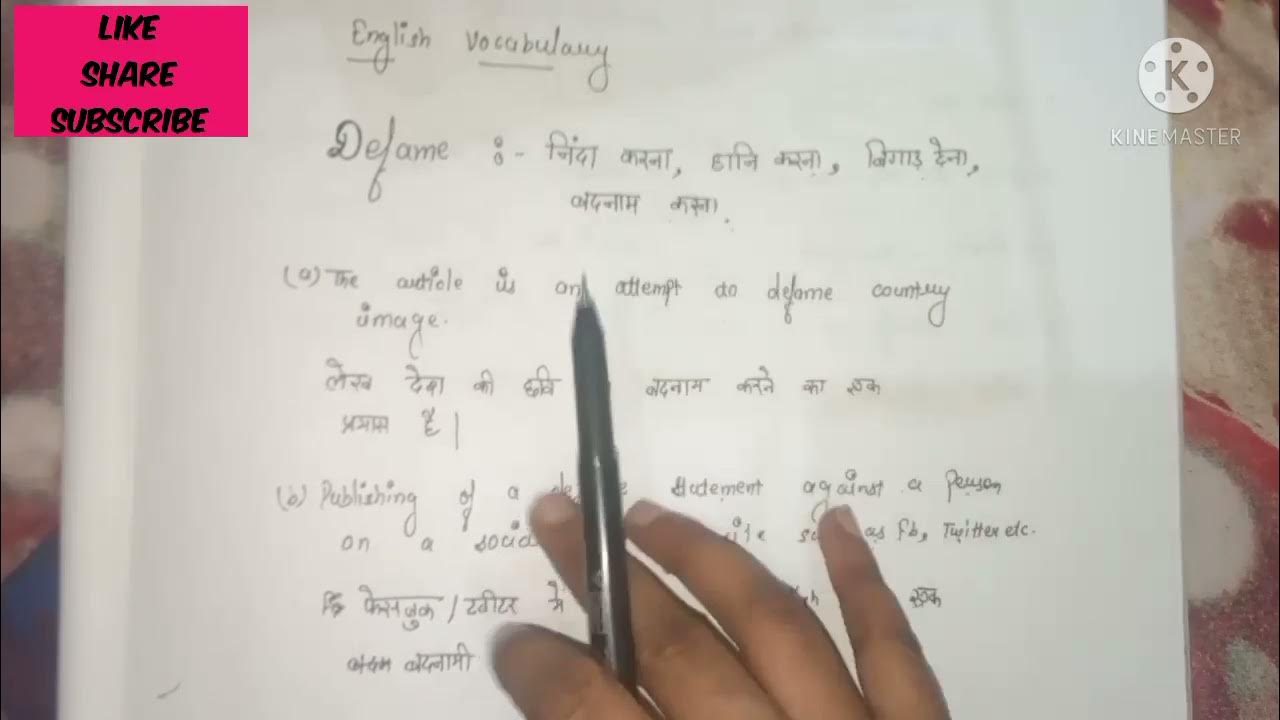 LIKE
SHARE
SUBSCRIBE
KINEMASTER
English Vocabulary
Defame :- निंदा करना, हानि करना, बिगाड़ देना,
बदनाम करना.
(a) The article is an attempt to defame country
image.
लेख देश की छवि बदनाम करने का एक
प्रयास है |
(b) Publishing of a statement against a person
on a as fb, Twitter etc.
फेसबुक / ट्वीटर में एक
बदनामी